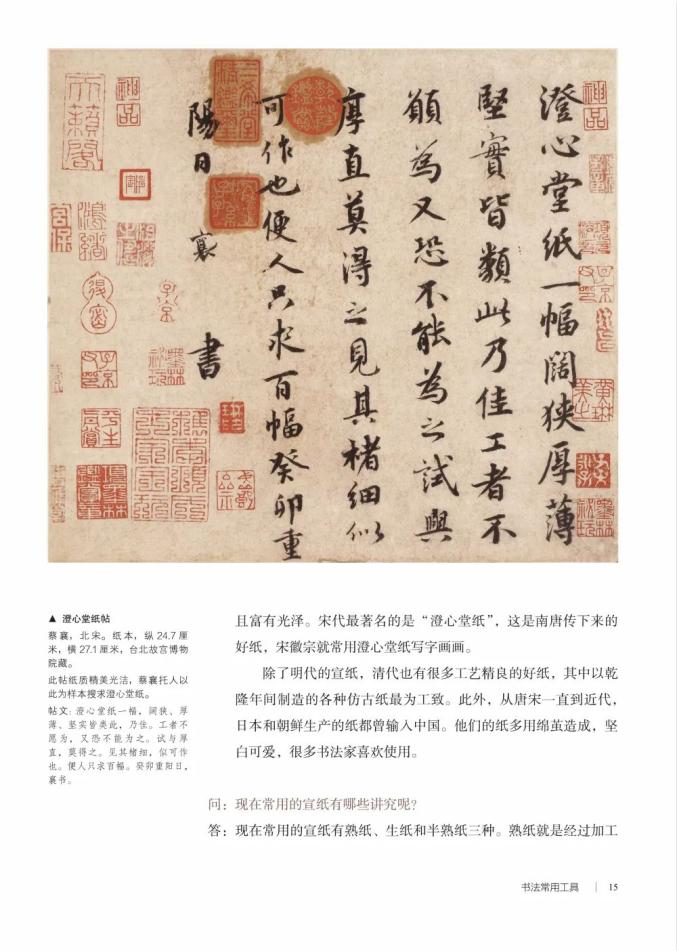 澄心堂紙一幅闊狹厚薄
堅實皆類此乃佳工者不
願為又恐不能為之試與
厚直莫得之見其楮細似
可作也便人只求百幅癸卯重
陽日 襄
書
神品
▲ 澄心堂纸帖
蔡襄，北宋。纸本，纵 24.7 厘
米，横 27.1 厘米，台北故宫博物
院藏。
此帖纸质精美光洁，蔡襄托人以
此为样本搜求澄心堂纸。
帖文：澄心堂纸一幅，阔狭、厚
薄、坚实皆类此，乃佳。工者不
愿为，又恐不能为之。试与厚
直，莫得之。见其楮细，似可作
也。便人只求百幅。癸卯重阳日，
襄书。
且富有光泽。宋代最著名的是“澄心堂纸”，这是南唐传下来的
好纸，宋徽宗就常用澄心堂纸写字画画。
除了明代的宣纸，清代也有很多工艺精良的好纸，其中以乾
隆年间制造的各种仿古纸最为工致。此外，从唐宋一直到近代，
日本和朝鲜生产的纸都曾输入中国。他们的纸多用绵茧造成，坚
白可爱，很多书法家喜欢使用。
问：现在常用的宣纸有哪些讲究呢？
答：现在常用的宣纸有熟纸、生纸和半熟纸三种。熟纸就是经过加工
书法常用工具 | 15